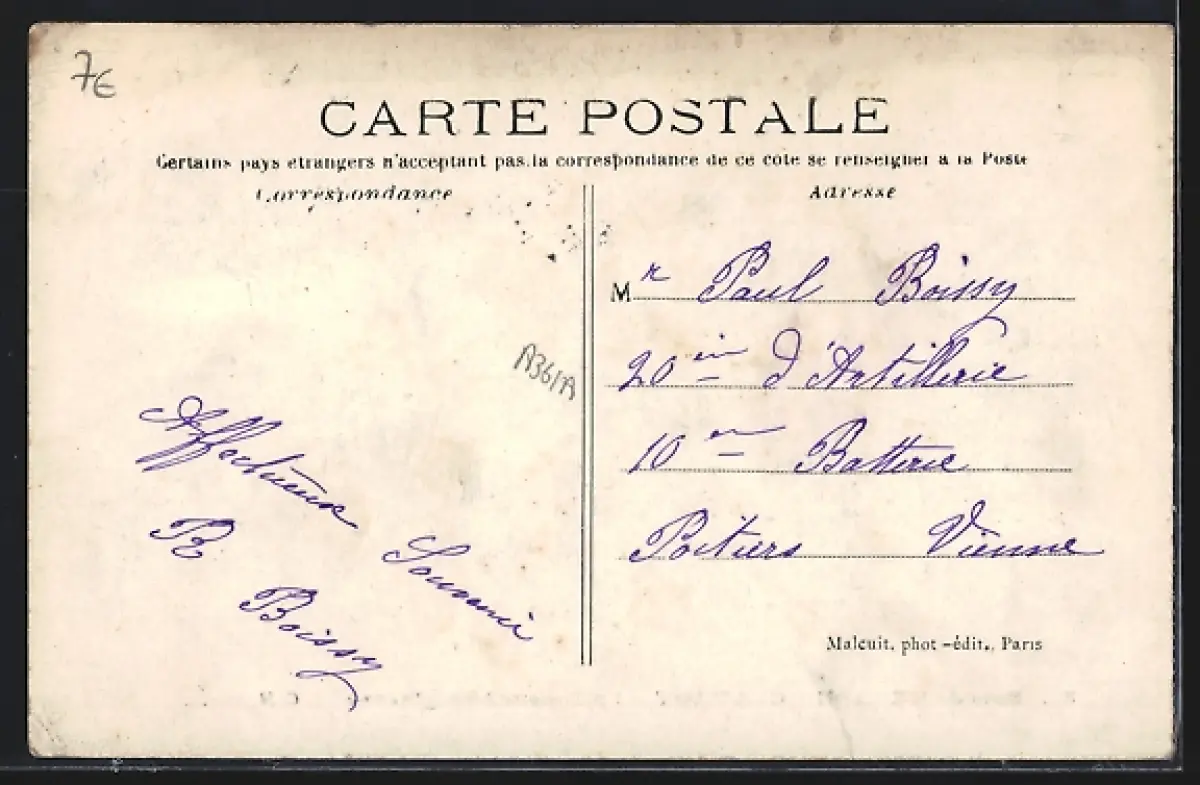 7€
CARTE POSTALE
Certains pays étrangers n'acceptant pas la correspondance de ce côté se renseigner à la Poste
Correspondance
Adresse
Mr Paul Boissy
20em d'Artillerie
A361A
10em Batterie
Poitiers Vienne
Affectueux
Souvenir
R Boissy
Malcuit, phot-édit., Paris